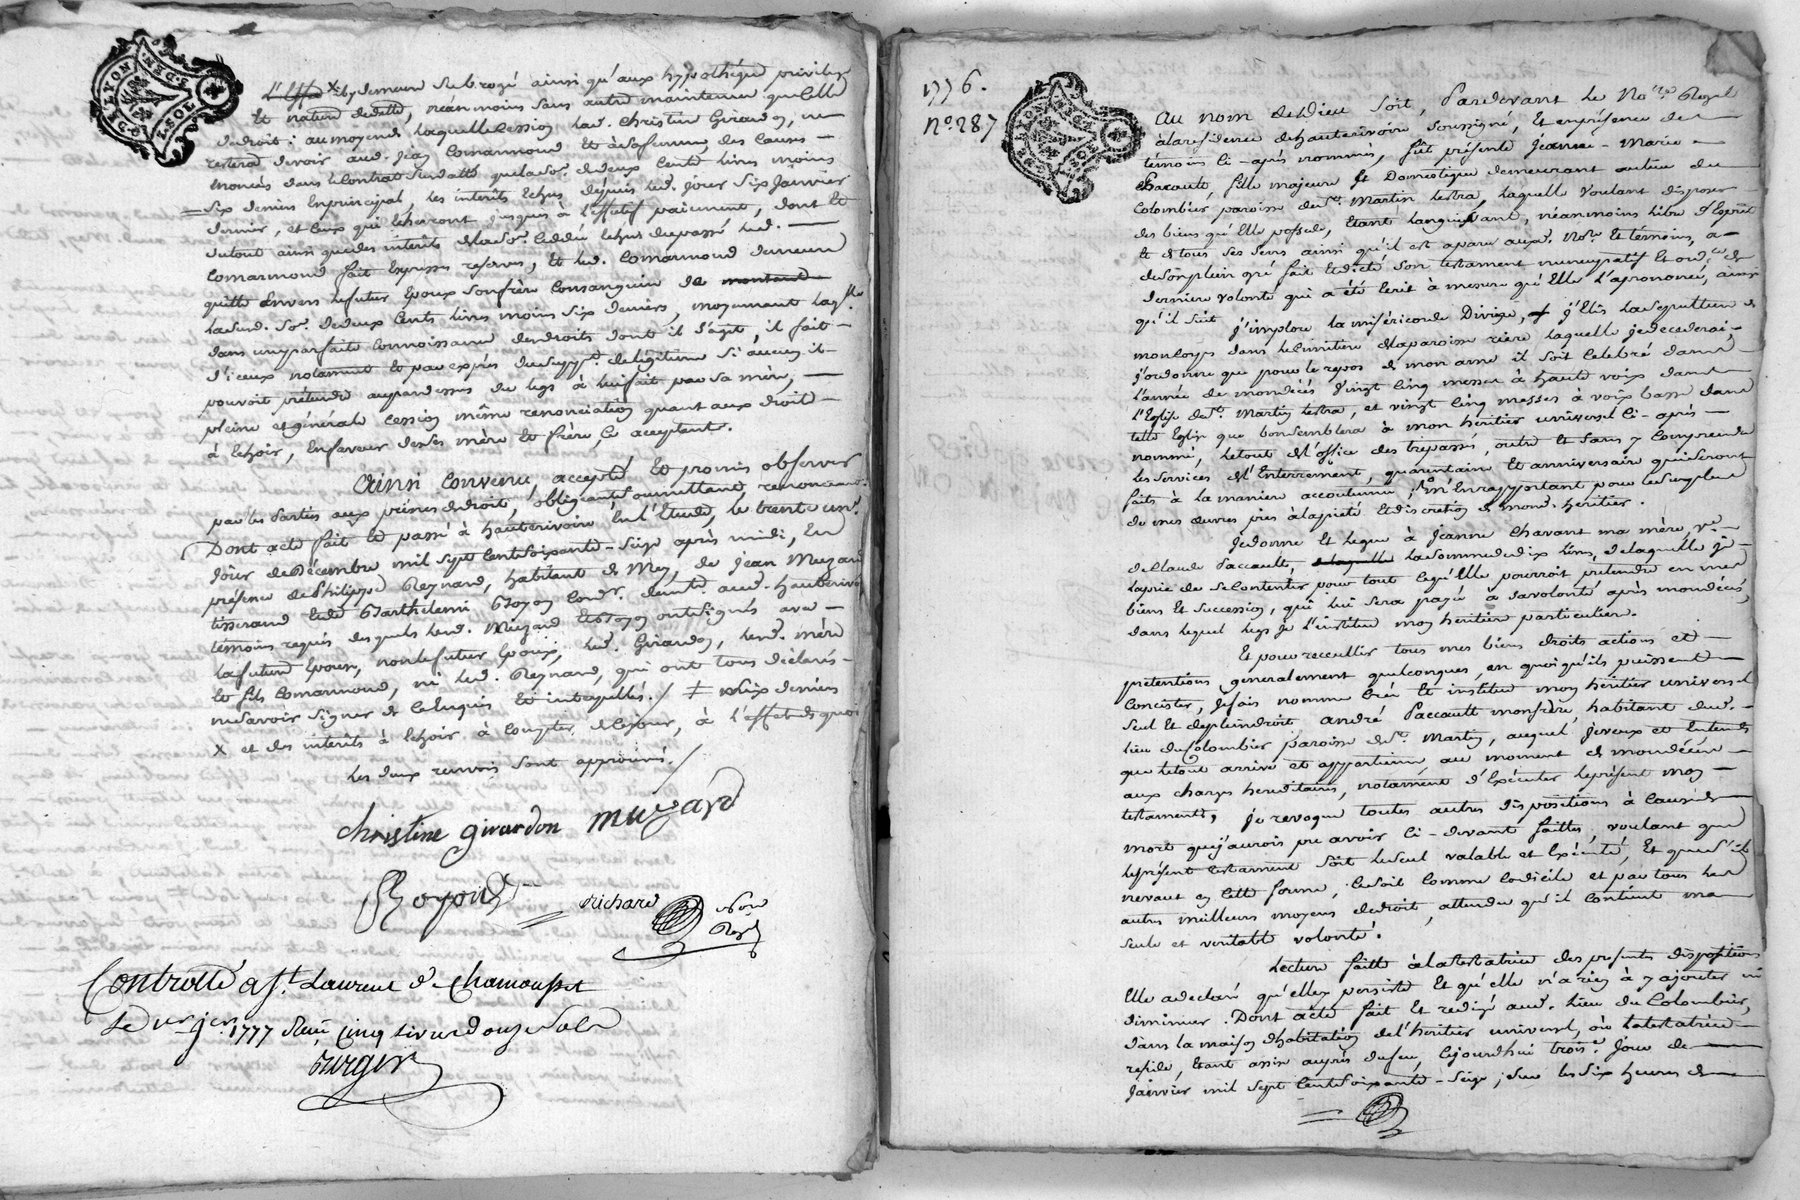 G. DE LYON
2 SOL
S. DEN
L'effet X y demeure subrogé ainsi qu'aux hypothèque privilege
Et nature de dette, néanmoins sans autre maintenue que celle
de droit: au moyen de laquelle cession lad. Christine Girardon, ne
restera devoir aud. Jean Comarmond Et à sa femme des causes
énoncés dans le Contrat susdatté que la so.e de deux Cents livres moins
Six deniers En principal, les intérêts Echus dépuis led. jour Six Janvier
dernier, et Ceux qui Echeront jusques à l'effectif paiement, dont Et
du tout ainsi que des intérêts de la so.e Cédée Echus du passé led.
Comarmond fait Expresses reserves, Et led. Comarmond demeure
quitte Envers le futur Epoux son frère Consanguin de montant
la susd. So.e de deux Cents livres moins six deniers, moyennant laq.lle
dans une parfaite connoissance des droits dont il s'agit, il fait
d'iceux notament Et par exprès du supp.t de légitime si aucun il
pouvoit prétendre au par dessus du legs à lui fait par sa mère,
pleine et générale cession même renonciation quant aux droits
à Echoir, En faveur desdes mère Et frère, Ce acceptant.
Ainsi Convenu, accepté Et promis observer
par les parties aux peines de droit, obligeants soumettant, renonceant.
Dont acte fait Et passé à hauterivoire En l'Etude, le trente un.e
Jour de Décembre mil Sept Cent Soixante-Seize après midi, En
présence de Philippe Reynard, habitant de Mey, de Jean Muzard
tisserand Et de Barthelemi Royon Cord.r demt. aud. hauterivoire
témoins requis desquels led. Muzard Et Royon ont signés avec
la future Epouse, non le futur Epoux, led. Girardon, lesd. mère
Et fils Comarmond, ni led. Reynard, qui ont tous déclarés
ne savoir signer de Ce Enquis Et interpellés. / ‡ Six deniers
X et des intérêts à Echoir à Compter de Ce jour, à l'effet de quoi
les deux renvois Sont approuvés. /
christine girardon muzard
Royon
richard Nore
Royal
Controllé a St. Laurent de Chamousset
Le 1er jer 1777 Reçu Cinq livres douze Sols
1776.
N.o 287
Au nom de Dieu soit, Pardevant le No.re Royal
à la résidence de hauterivoire soussigné, Et en présence des
témoins Ci-après nommés, fût présente Jeanne-Marie
Paccault, fille majeure Et Domestique demeurant au lieu du
Colombier paroisse de St. Martin Lestra, laquelle voulant disposer
des biens qu'Elle possede, Etant languissante, néanmoins libre d'Esprit
Et de tous ses sens ainsi qu'il est aparu aud. No.re Et témoins, a
de son plein gré fait Et dicté son testament nuncupatif Et ord.ce de
derniere volonté qui a été Ecrit à mesure qu'Elle l'a prononcé, ainsi
qu'il suit J'implore la miséricorde Divine, j'Elis la Sépulture de
mon Corps dans le Cimetière de la paroisse rière laquelle je decederai,
j'ordonne que pour le repos de mon ame il soit Celebré dans
l'année de mon décès Vingt Cinq messes à haute voix dans
l'Eglise de St. Martin Lestra, et vingt Cinq messes à voix basse dans
telle Eglise que bon semblera à mon héritier universel Ci-après
nommé, le tout de l'office des trepassés, outre Et sans y Comprendre
les Services de l'Enterrement, quarantaine Et anniversaire qui seront
faits à la maniere accoutumée, m'En rapportant pour le surplus
de mes œuvres pies à la piété Et discretion de mond. héritier.
Je donne Et legue à Jeanne Chavant ma mère, v.e
de Claude Paccault, la somme de dix livres, de laquelle je
la prie de se Contenter pour tout ce qu'Elle pourroit prétendre en mes
biens Et succession, qui lui sera payée à sa volonté après mon décès,
dans lequel legs je l'institue mon héritière particulière.
Et pour recueillir tous mes biens droits actions et
prétentions généralement quelconques, en quoi qu'ils puissent
Concister, Je fais nomme Crée Et institue mon héritier universel
Seul Et de plein droit andré Paccault mon frère, habitant dud.
lieu du Colombier paroisse de St. Martin, auquel je veux et Entends
que le tout arrive et appartienne au moment de mon décès
aux charges héréditaires, notament d'Exécuter le présent mon
testament, je revoque toutes autres dispositions à cause de
mort que j'aurois pu avoir Ci-devant faittes, voulant que
le présent testament soit le seul valable et Exécuté, Et que s'il
ne vaut en Cette forme, Ce soit comme Codicile et par tous les
autres meilleurs moyens de droit, attendu qu'il contient ma
seule et veritable volonté.
Lecture faitte à la testatrice des presentes dispositions
Elle a declaré qu'elle y persiste Et qu'elle n'a rien à y ajouter ni
diminuer. Dont acte fait et redigé aud. lieu du Colombier,
dans la maison d'habitation de l'héritier universel, où la testatrice
réside, Etant assise auprès du feu, Cejourdhui trois.e jour de
Janvier mil sept Cent Soixante-Seize, sur les six heures de